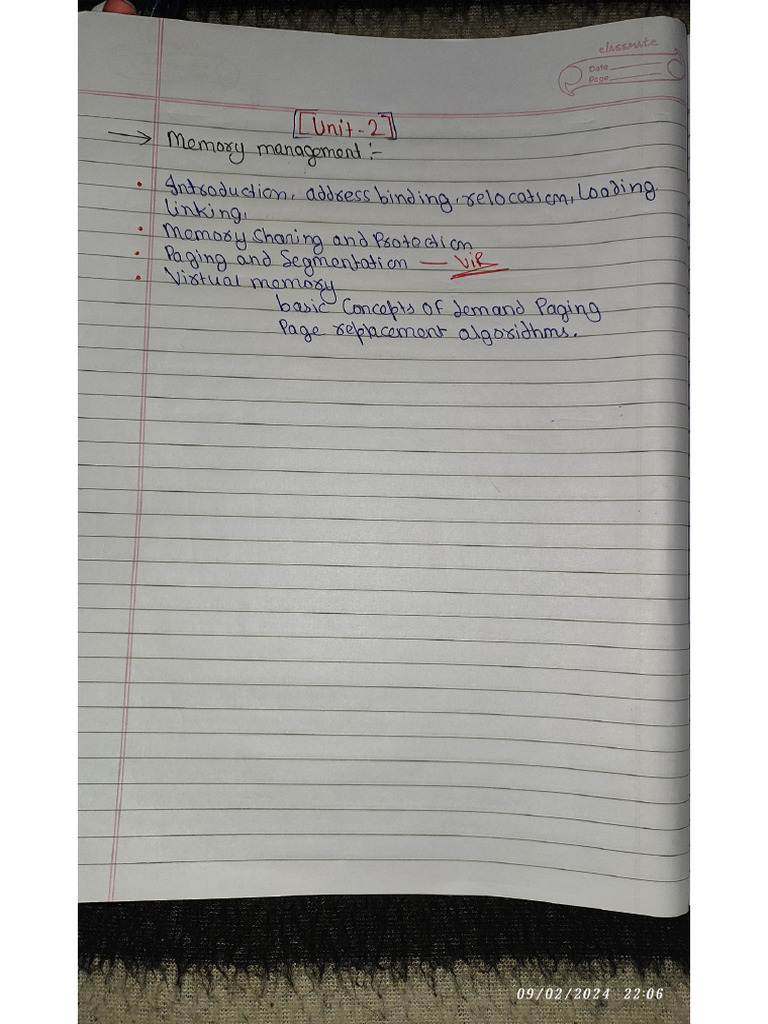 classmate
Date
Page
[Unit-2]
→ Memory management:-
• Introduction, address binding, relocation, Loading
linking,
• Memory Sharing and Protection
• Paging and Segmentation — ViP
• Virtual memory
basic Concepts of demand Paging
Page replacement algorithms.
09/02/2024 22:06